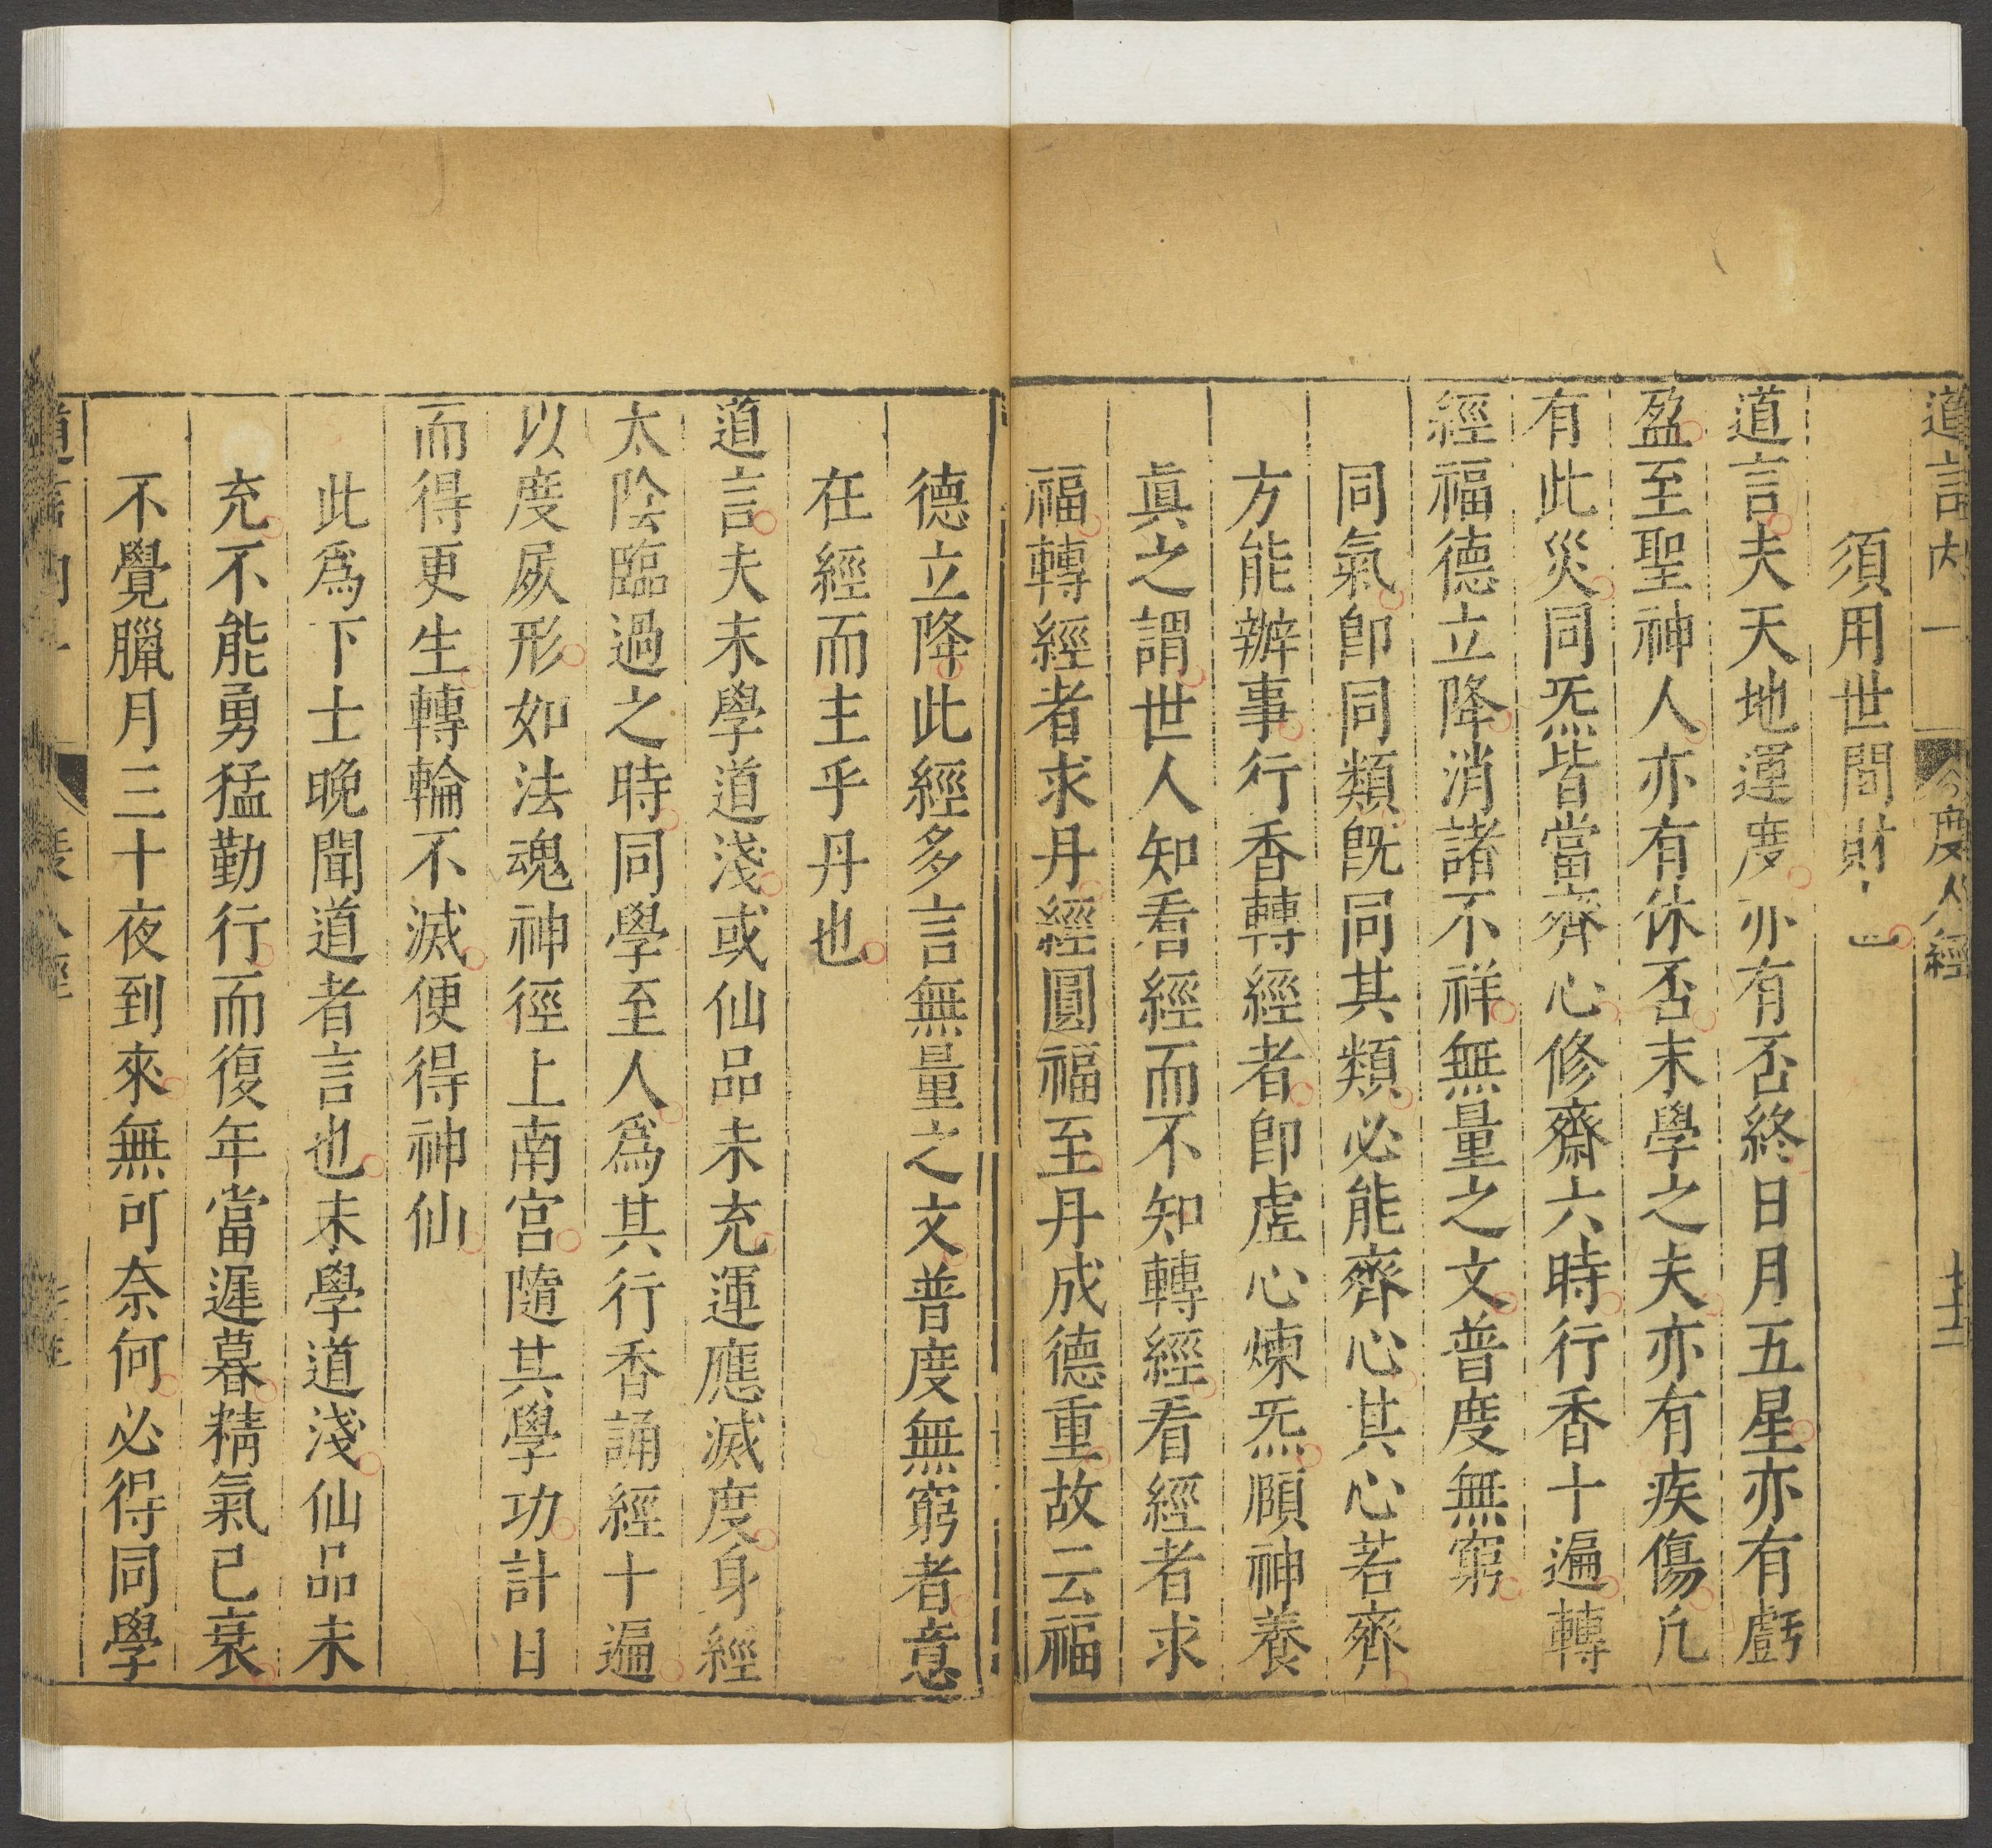 道言内一 度人經 十二
須用世間財也
道言夫天地運度亦有否終日月五星亦有虧
盈至聖神人亦有休否末學之夫亦有疾傷凢
有此災同炁皆當齊心修齋六時行香十遍轉
經福德立降消諸不祥無量之文普度無窮
同氣卽同類旣同其類必能齊心其心若齊
方能辦事行香轉經者卽虛心煉炁頤神養
眞之謂世人知看經而不知轉經看經者求
福轉經者求丹經圓福至丹成德重故云福
德立降此經多言無量之文普度無窮者意
在經而主乎丹也
道言夫末學道淺或仙品未充運應滅度身經
太陰臨過之時同學至人爲其行香誦經十遍
以度屍形如法魂神徑上南宮隨其學功計日
而得更生轉輪不滅便得神仙
此爲下士晚聞道者言也末學道淺仙品未
充不能勇猛勤行而復年當遲暮精氣已衰
不覺臘月三十夜到來無可奈何必得同學